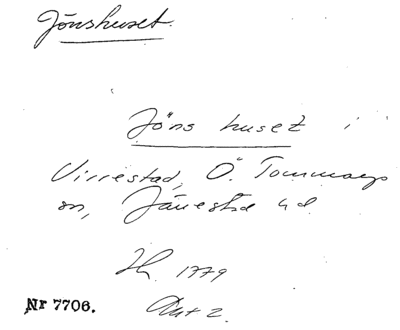 Jönshuset.
Jöns huset i
Virrestad, Ö. Tommarps
sn, Järrestad hd
Hk. 1779
Akt 2.
Nr 7706.